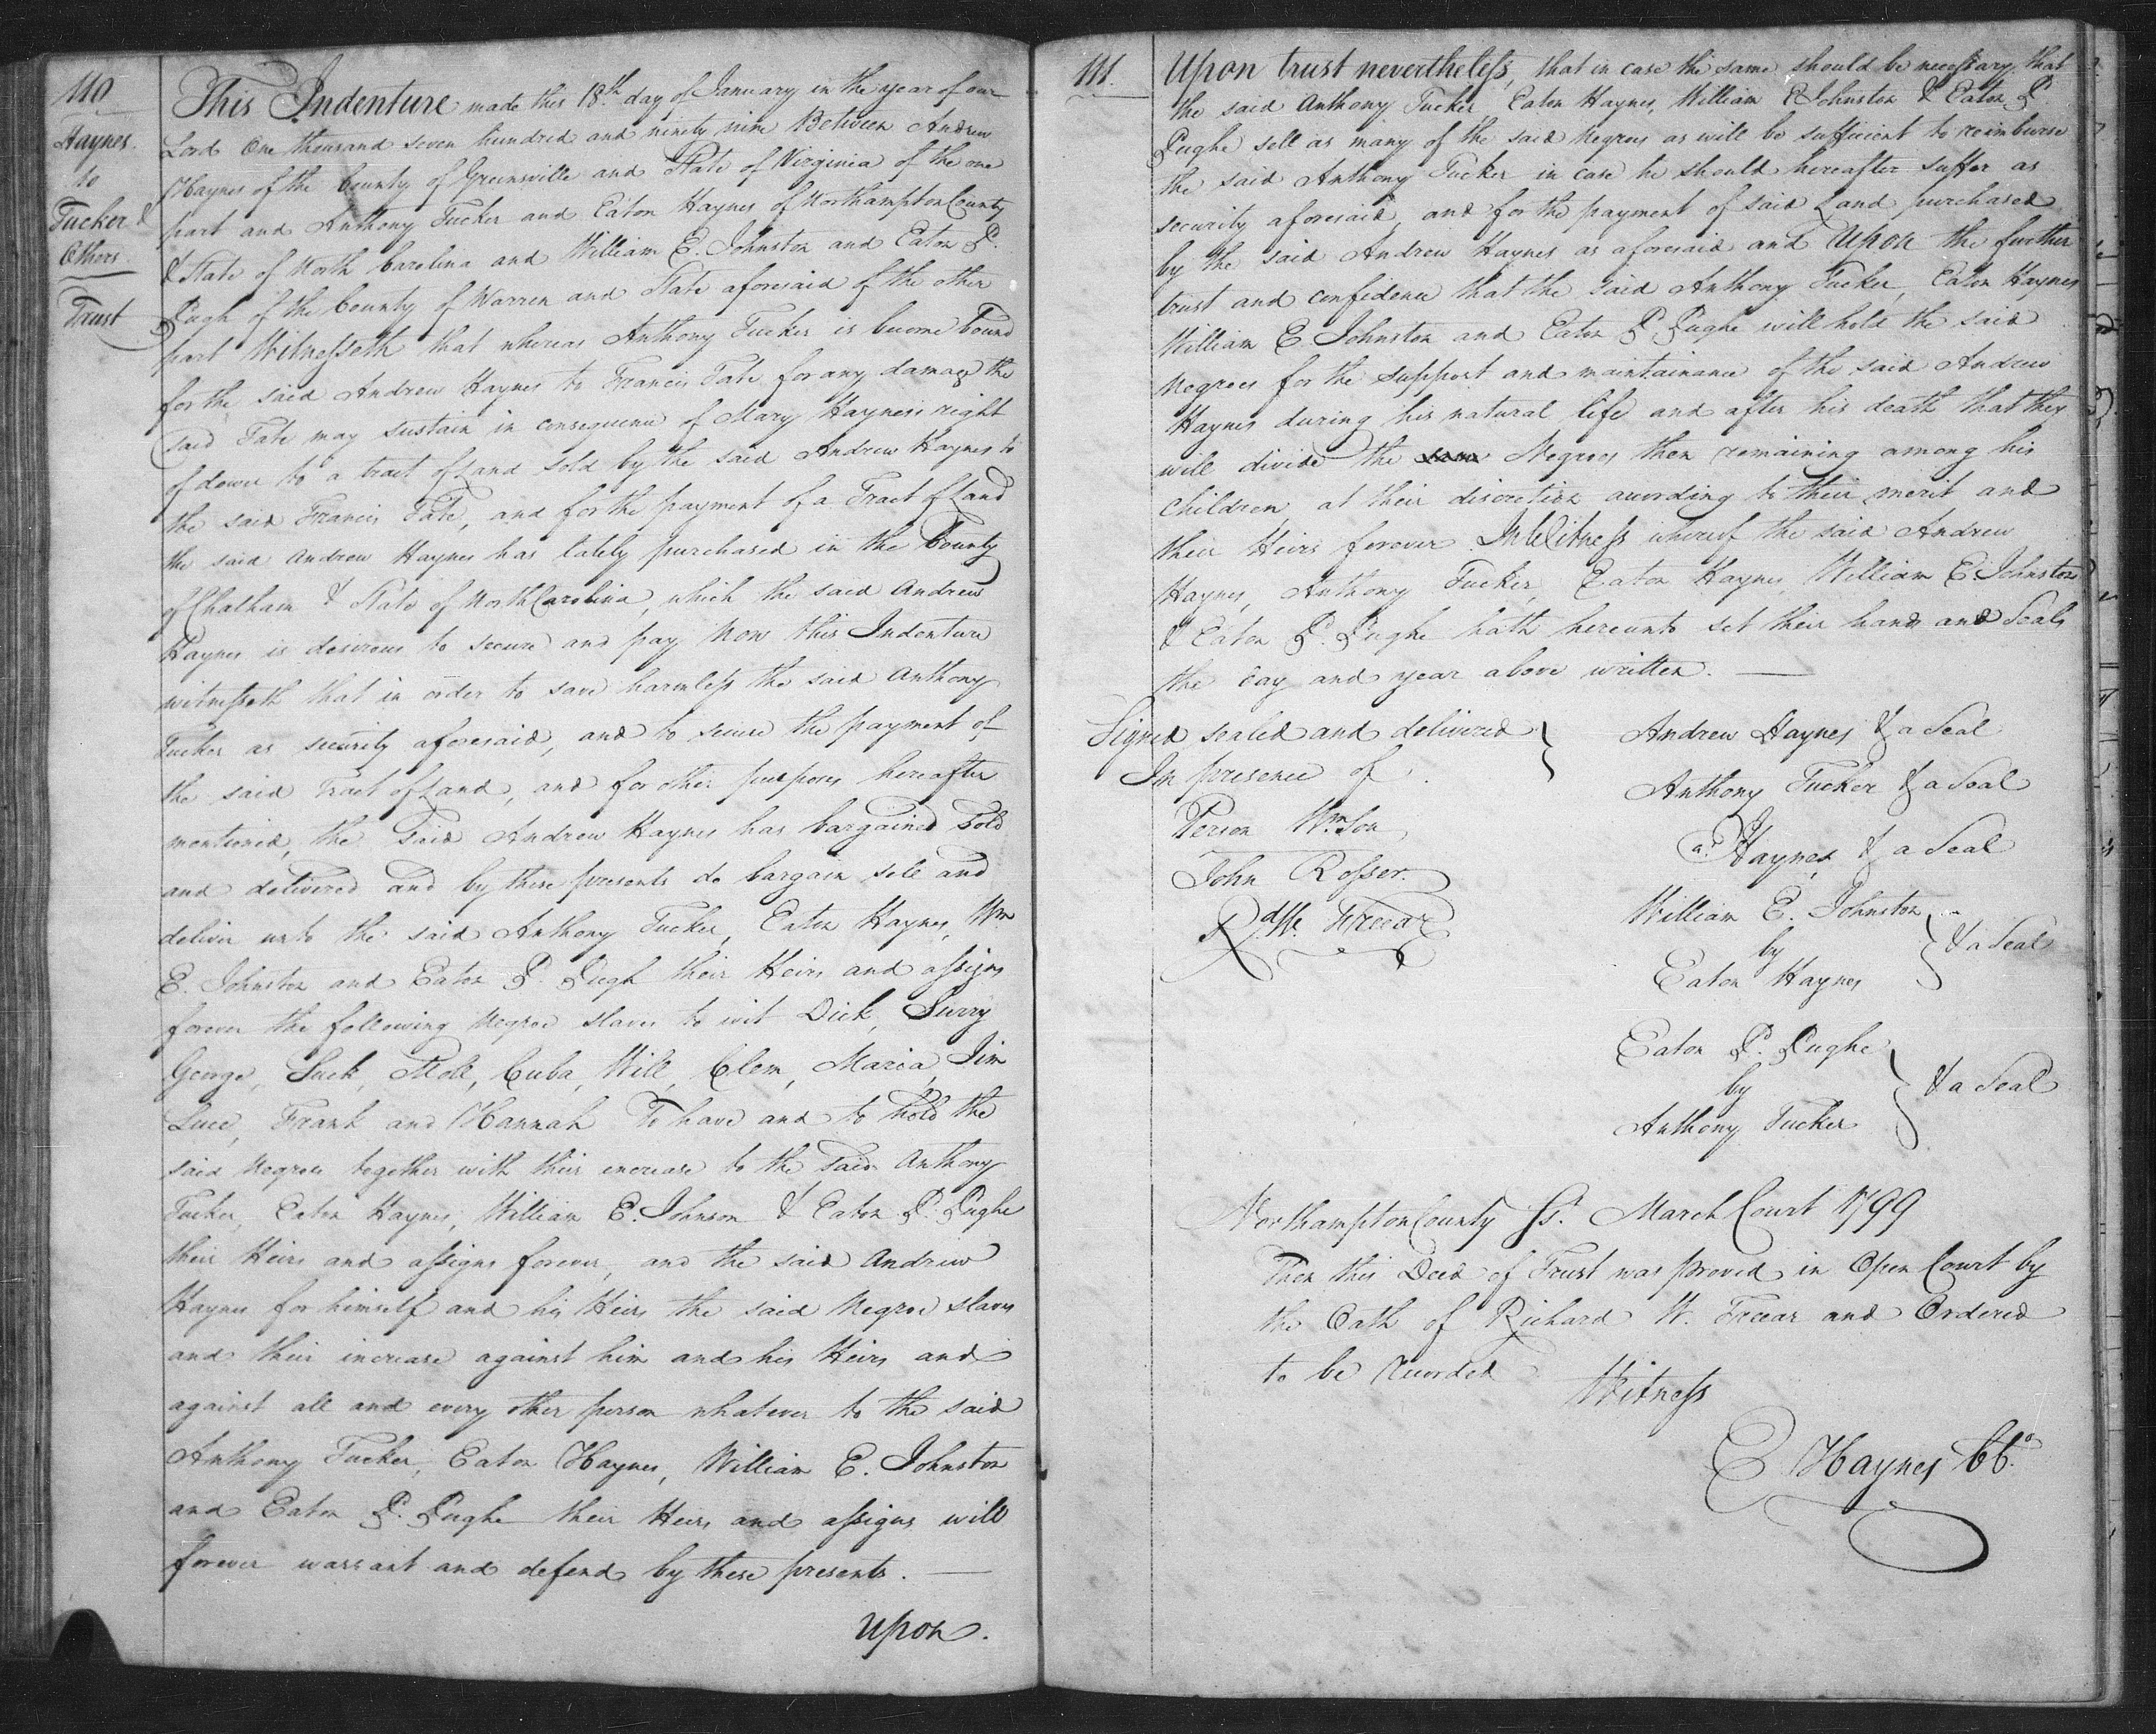 110
Haynes
to
Tucker &
Others
Trust
This Indenture made this 18th day of January in the year of our
Lord One thousand seven hundred and ninety nine Between Andrew
Haynes of the County of Greensville and State of Virginia of the one
part and Anthony Tucker and Eaton Haynes of Northampton County
& State of North Carolina and William E. Johnston and Eaton P.
Pugh of the County of Warren and State aforesaid of the other
part Witnesseth that whereas Anthony Tucker is become bound
for the said Andrew Haynes to Francis Tate for any damage the
said Tate may sustain in consequence of Mary Haynes's right
of dower to a tract of Land sold by the said Andrew Haynes to
the said Francis Tate, and for the payment of a Tract of Land
the said Andrew Haynes has lately purchased in the County
of Chatham & State of North Carolina, which the said Andrew
Haynes is desirous to secure and pay Now this Indenture
witnesseth that in order to save harmless the said Anthony
Tucker as security aforesaid, and to secure the payment of
the said Tract of Land, and for other purposes hereafter
mentioned, the said Andrew Haynes has bargained sold
and delivered and by these presents do bargain sell and
deliver unto the said Anthony Tucker, Eaton Haynes, Wm
E. Johnston and Eaton P. Pugh their Heirs and assigns
forever the following Negroe slaves to wit Dick, Surry
George, Suck, Moll, Cuba, Will, Clem, Maria, Jim
Luce, Frank and Hannah To have and to hold the
said Negroes together with their encrease to the said Anthony
Tucker, Eaton Haynes, William E. Johnson & Eaton P. Pughe
their Heirs and assigns forever, and the said Andrew
Haynes for himself and his Heirs the said Negroe slaves
and their increase against him and his Heirs and
against all and every other person whatever to the said
Anthony Tucker, Eaton Haynes, William E. Johnston
and Eaton P. Pughe their Heirs and assigns will
forever warrant and defend by these presents. —
Upon.
111.
Upon trust nevertheless, that in case the same should be necessary that
the said Anthony Tucker, Eaton Haynes, William E Johnston & Eaton P.
Pughe sell as many of the said Negroes as will be sufficient to reimburse
the said Anthony Tucker in case he should hereafter suffer as
security aforesaid, and for the payment of said Land purchased
by the said Andrew Haynes as aforesaid and Upon the further
trust and confidence that the said Anthony Tucker, Eaton Haynes
William E. Johnston and Eaton P. Pughe will hold the said
Negroes for the support and maintainance of the said Andrew
Haynes during his natural life and after his death that they
will divide the Negroes then remaining among his
children at their discretion according to their merit and
their Heirs forever In Witness whereof the said Andrew
Haynes, Anthony Tucker, Eaton Haynes, William E. Johnston
& Eaton P. Pughe hath hereunto set their hands and Seals
the day and year above written. —
Signed sealed and delivered
In presence of
Person Wmson
John Rosser.
Rd W. Freear
Andrew Haynes & a Seal
Anthony Tucker & a Seal
a. Haynes & a Seal
William E. Johnston
by
Eaton Haynes
& a Seal
Eaton P. Pughe
by
Anthony Tucker
& a Seal
Northampton County Ss. March Court 1799
Then this Deed of Trust was proved in Open Court by
the Oath of Richard W. Freear and Ordered
to be recorded
Witness
E Haynes CC.